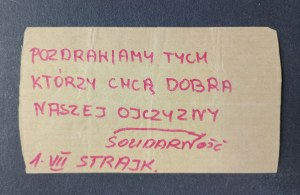 POZDRAWIAMY TYCH
KTÓRZY CHCĄ DOBRA
NASZEJ OJCZYZNY
SOLIDARNOŚĆ
1. VII STRAJK.